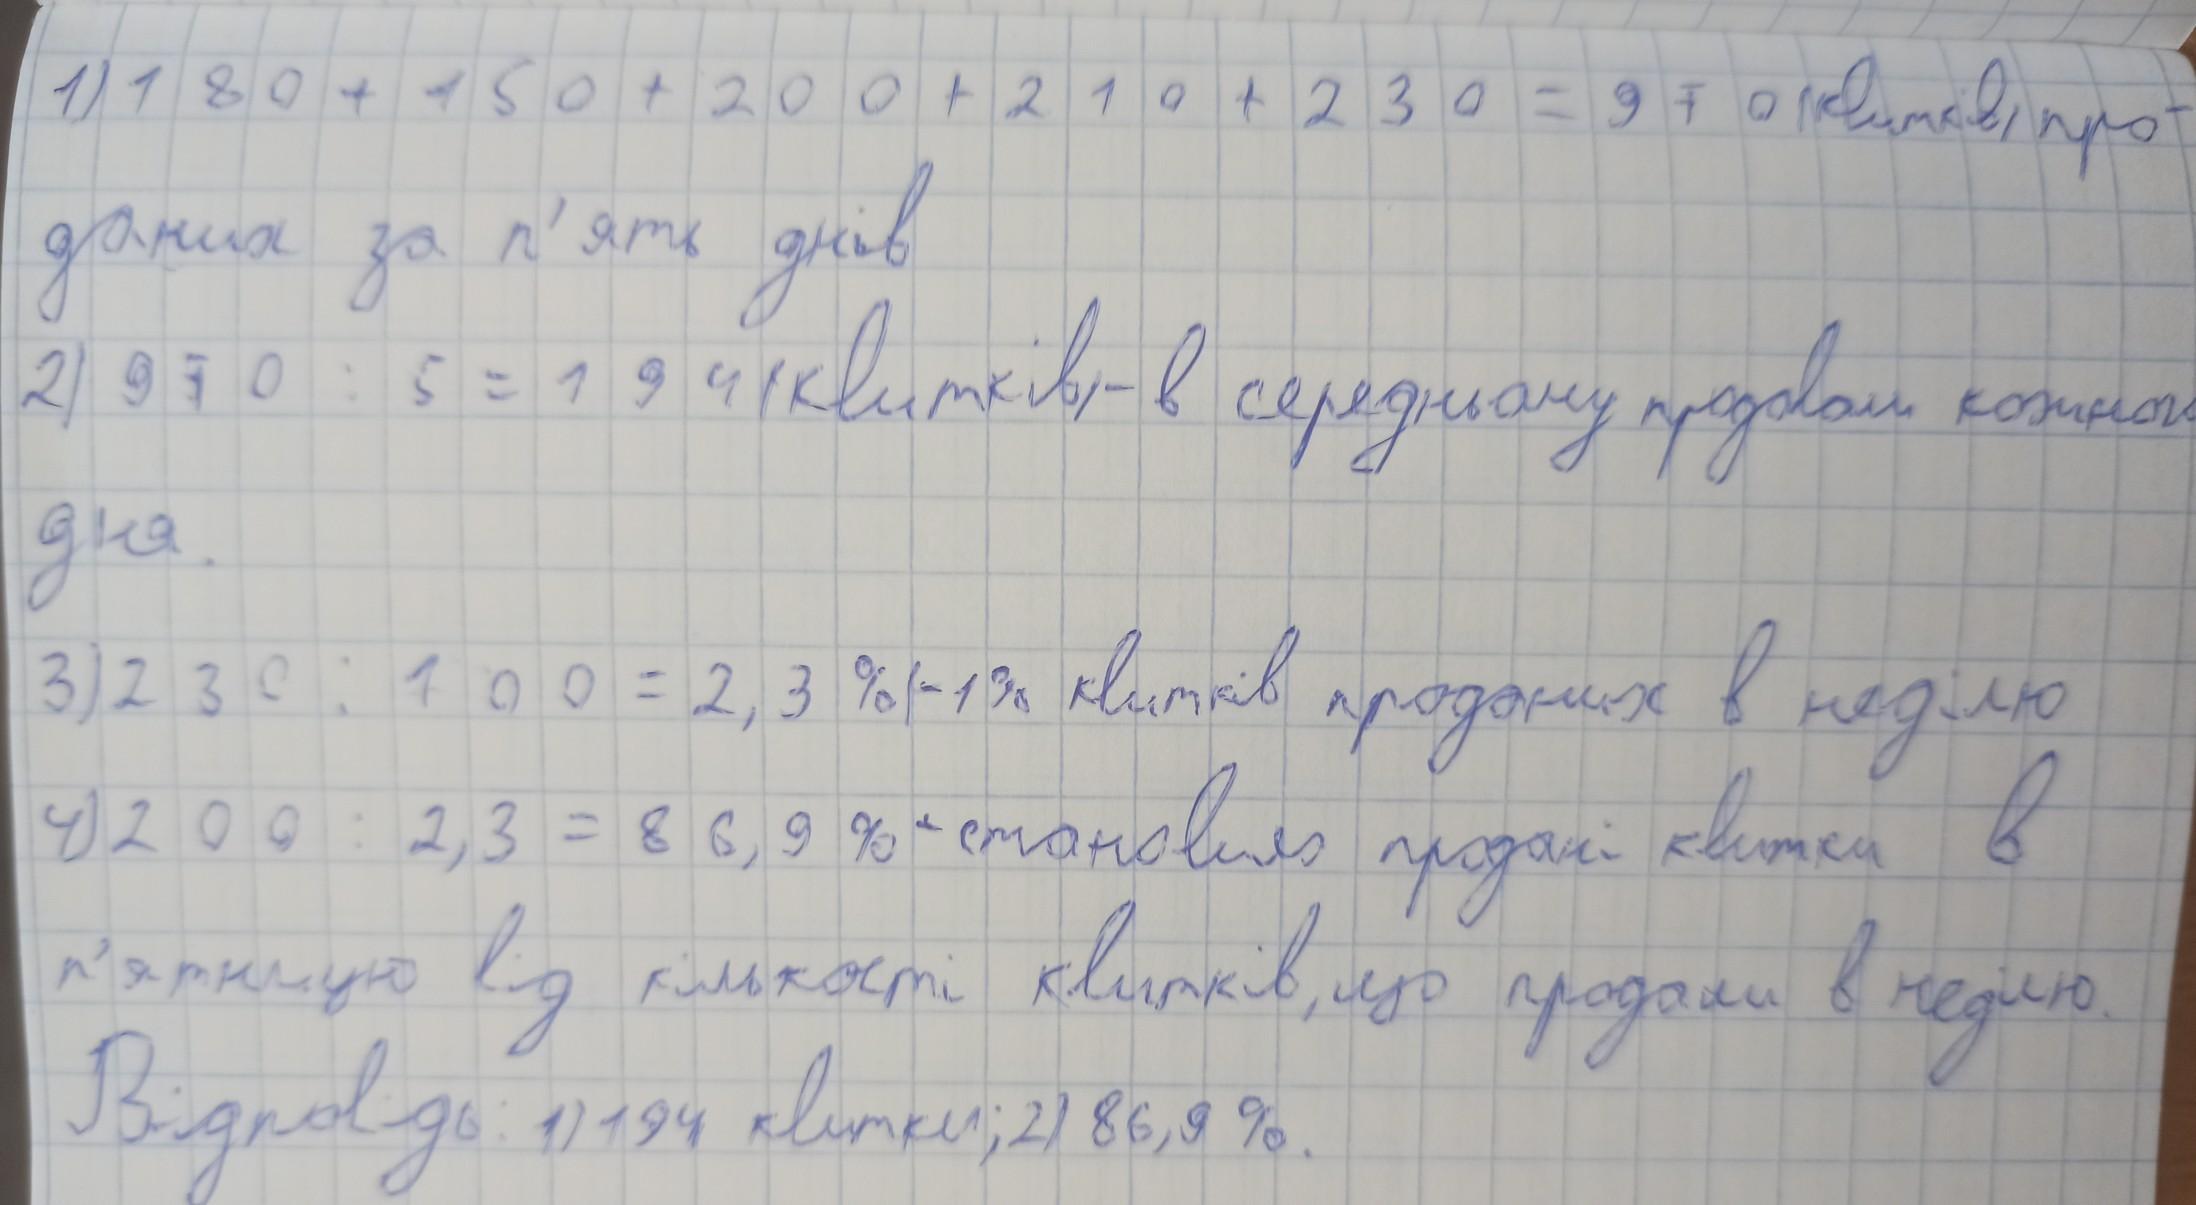 1) 180 + 150 + 200 + 210 + 230 = 970 (квитків) про-
даних за п'ять днів
2) 970 : 5 = 194 (квитків) - в середньому продавали кожного
дня.
3) 230 : 100 = 2,3 %(- 1% квитків проданих в неділю
4) 200 : 2,3 = 86,9 % - становило продані квитки в
п'ятницю від кількості квитків, що продали в неділю.
Відповідь: 1) 194 квитки; 2) 86,9 %.